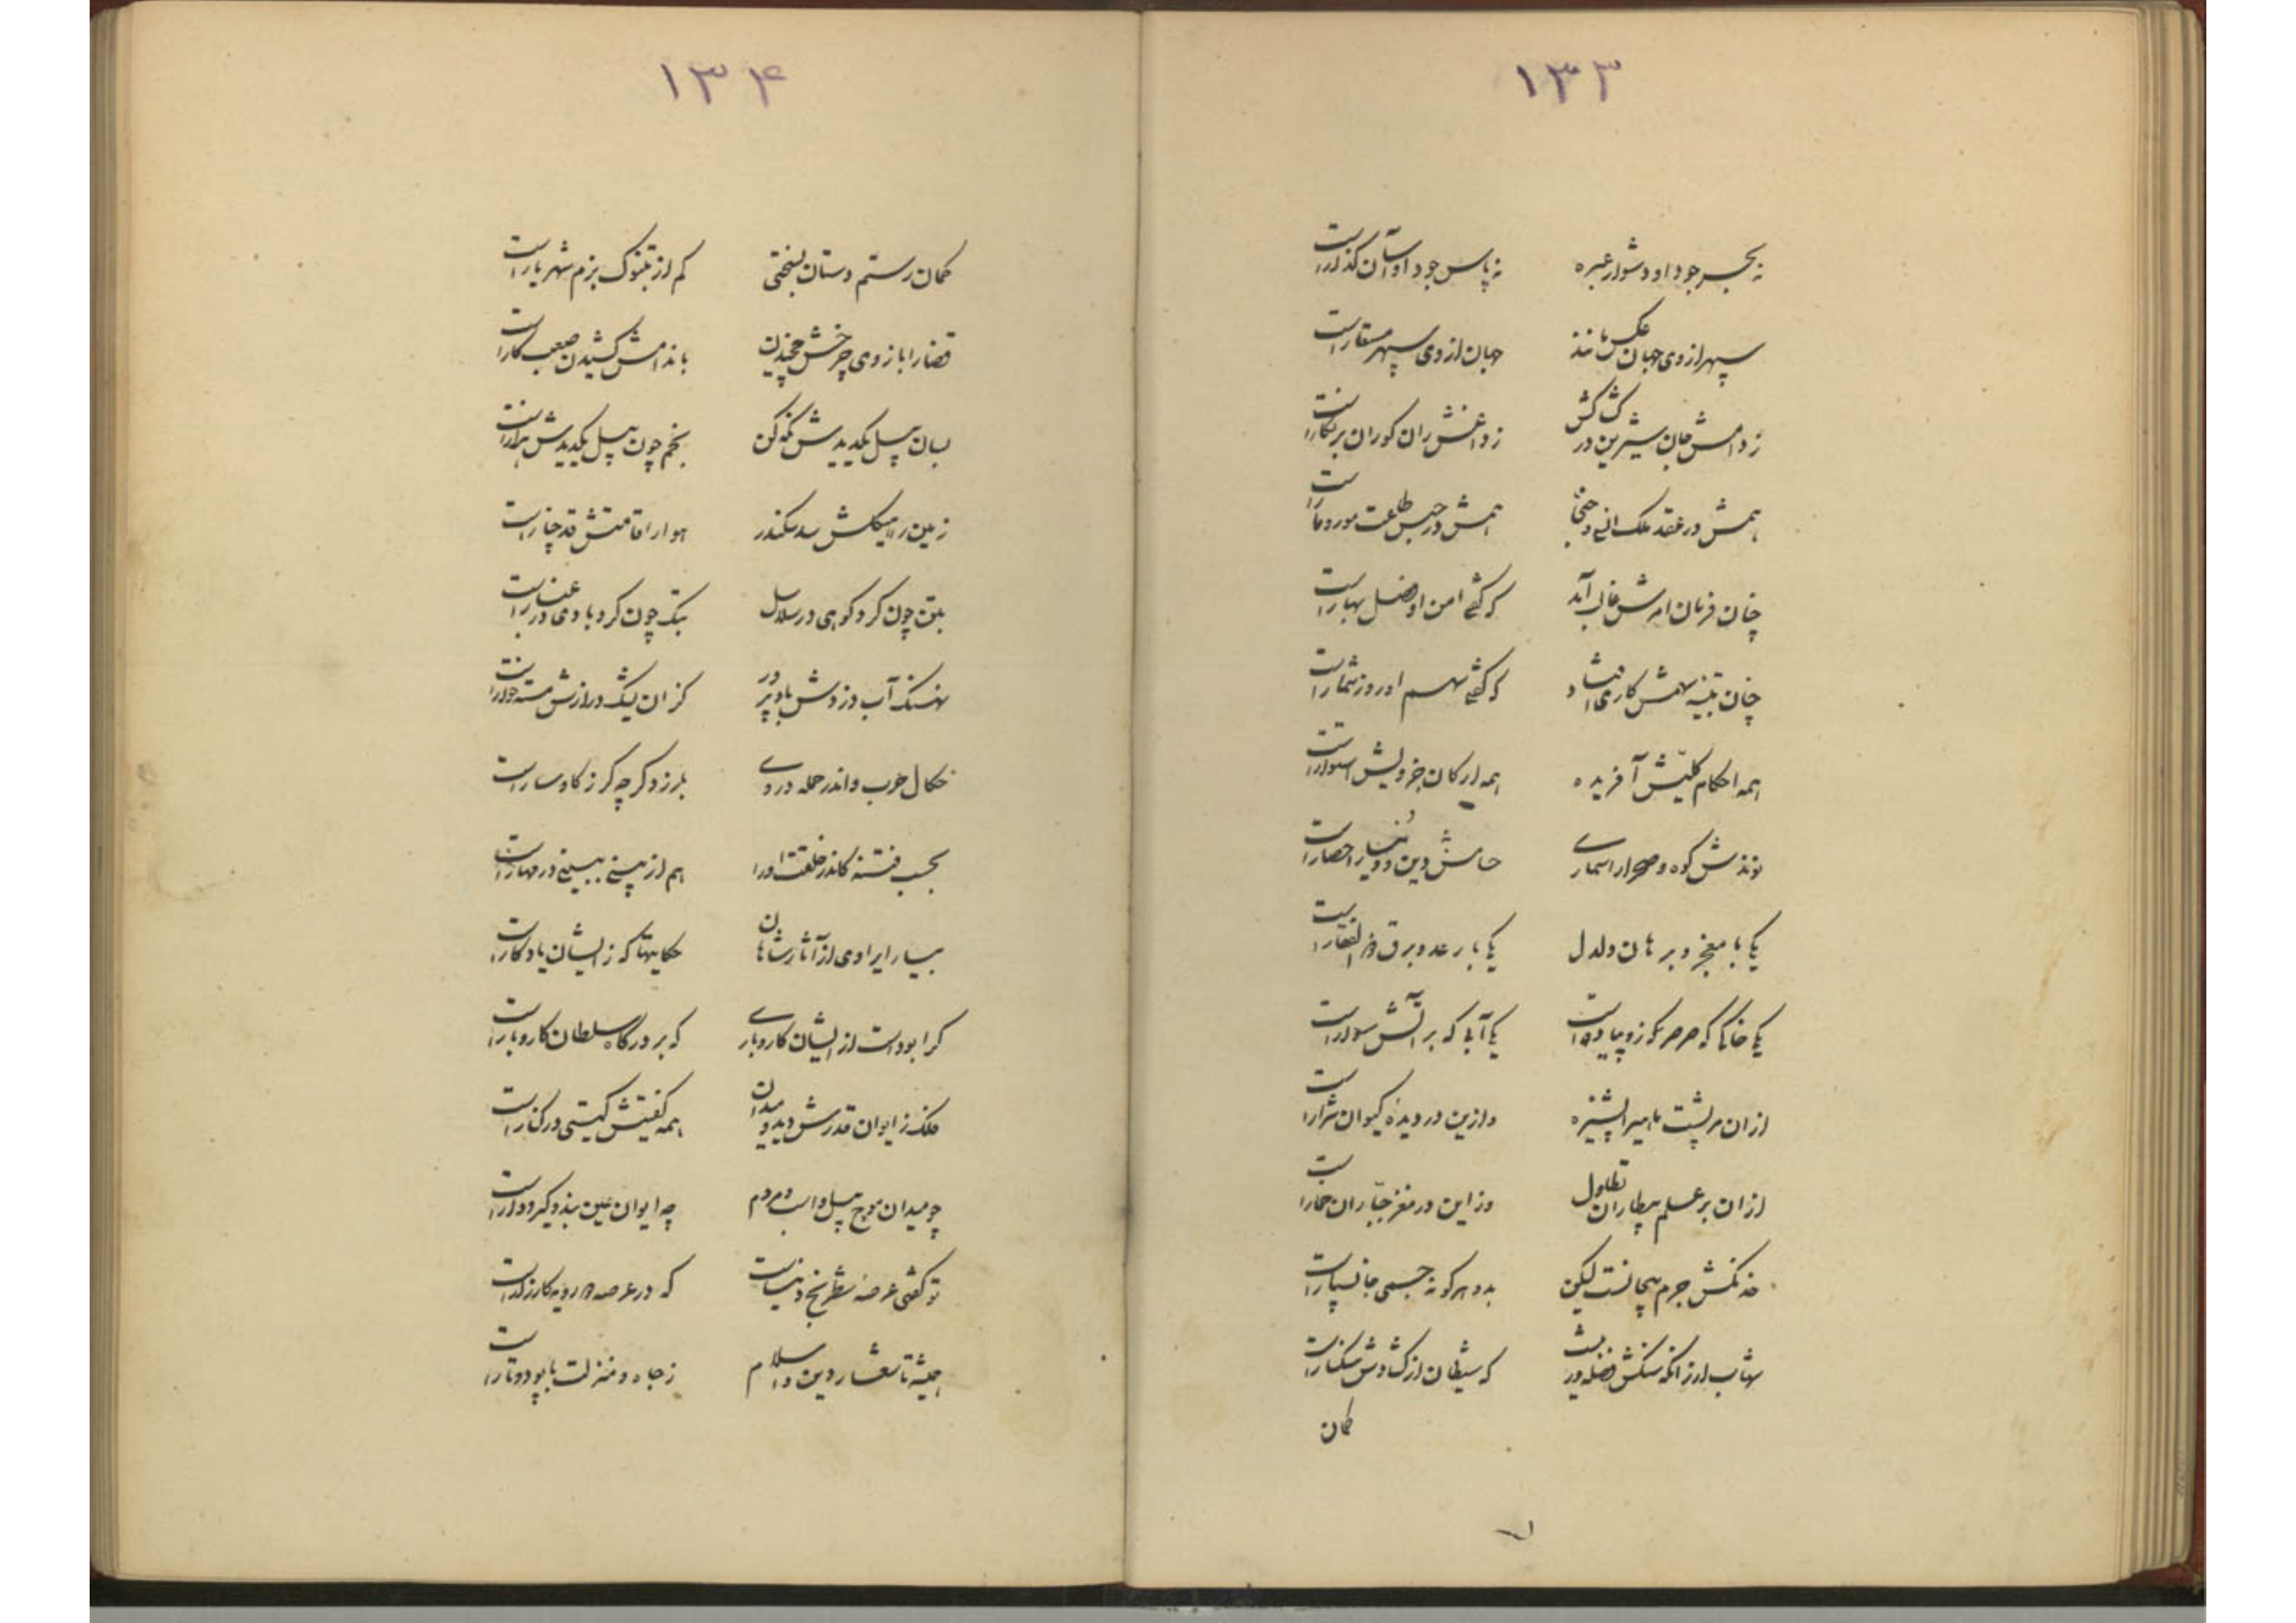 ۱۳۳
نه بحر جود او دشوار عبره نه پاس جود او آسان گذارست
سپهر از وی جهان عکس مانند جهان از وی سپهر مستقارست
ز دامش جان شیرین در کشاکش ز داغش ران گوران پرنگارست
همش در عقد ملک انسی و جنی همش در حبس طاعت مور و مارست
چنان فرمان امرش غالب آمد که گفتی امن او فصل بهارست
چنان تنبیه سهمش کاری افتاد که گفتی سهم او روز شمارست
همه احکام کلیش آفریده همه ارکان جزویش استوارست
نوندش کوه و صحرا را سماری حسامش دین و دنیا را حصارست
یکی با معجز و برهان دلدل یکی با رعد و برق ذوالفقارست
یکی خاکی که صرصر گو زو پیاده است یکی آبی که بر آتش سوارست
از آن مر پشت ماهی را پشیزه وزین در دیده کیوان شرارست
از آن بر علم بیطاران تطاول وز این در مغز جباران خمارست
خدنگش جرم بیجانست لیکن بدو هر گونه جسمی جانسپارست
شهاب ارزانکه سنگش فضله در که شیطان از گشادش سنگسارست
کمان
۱۳۴
کمان رستم دستان بسختی کم از تبنوک بزم شهریارست
قضا را با زوی چرخش خمیدن باندامش کشیدن صعب کارست
بسان پیل یکدیدش نگه کن بخم چون پیل یکدیدش هزارست
زمین را هیکلش سد سکندر هوا را قامتش قد چنارست
بتن چون کرد کوهی در سلاسل بتک چون کرد بادی در عنانست
نهنگ آب دزدش باد پرور کز ان یشک درازش مسته خوارست
خکال حرب و اندر حمله دردی بلرزد گرچه گرز گاوسارست
بحسب فتنه کاندر خلقت او را هم از بینی ببینی در مهارست
بسیار ای راوی از آثار شاهان حکایتها که زایشان یادگارست
کرا بودست از ایشان کار و باری که بر درگاه سلطان کار و بارست
فلک ز ایوان قدرش دید و میدان همه گفتیش گیتی در کنارست
چو میدان موج پیل و اسب و مردم چه ایوان عین بند و گیر و دارست
تو گفتی عرضه شطرنج دنیاست که در عرصه دو رویه کارزارست
همیشه تا شعار دین و اسلام ز جاه و منزلت با پود و تارست